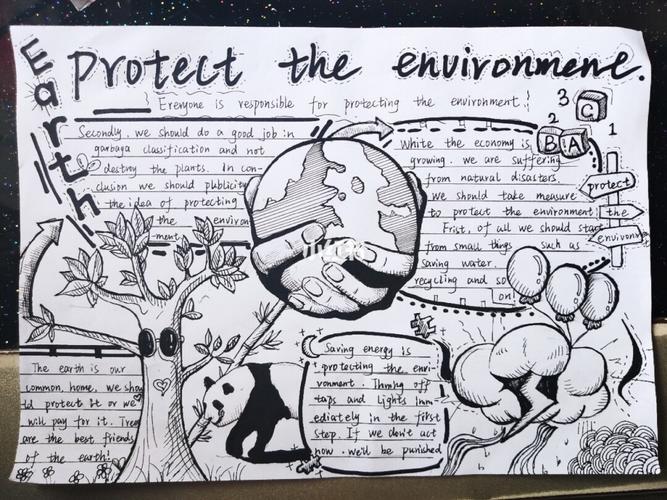 Earth
Protect the environmene.
Ereryone is responsible for protecting the environment!
Secondly, we should do a good job in
garbaya classification and not
destroy the plants. In con-
clusion we should publicity
the idea of protecting
the environ
-ment.
White the economy is
growing. we are suffering
from natural disasters.
We should take measure
to protect the environment!
Frist, of all we should start
from small things such as
saving water.
recycling and so
on!
3 C
2
B A
1
protect
the
environment
小红书
The earth is our
common, home, we shou
ld protect it or we
will pay for it. Trees
are the best friends
of the earth!
Saving energy is
protecting the envi-
vonment. Thning off
taps and lights imm
ediately in the first
step. If we don't act
now. we'll be punished